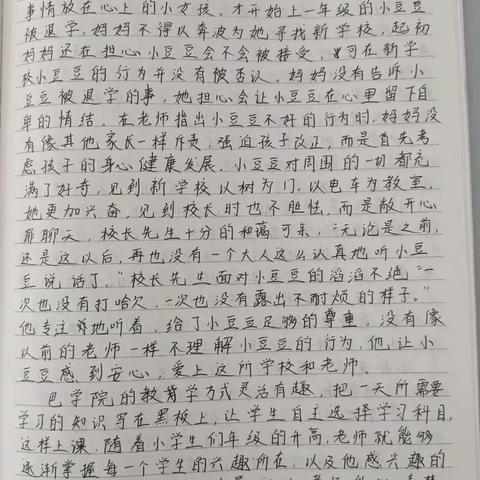 事情放在心上的小女孩，才开始上一年级的小豆豆
被退学，妈妈不得以奔波为她寻找新学校，起初
妈妈还在担心小豆豆会不会被接受，可在新学
校小豆豆的行为并没有被否认。妈妈没有告诉小
豆豆被退学的事，她担心会让小豆豆在心里留下自
卑的情结。在老师指出小豆豆不好的行为时，妈妈没
有像其他家长一样斥责，强迫孩子改正，而是首先考
虑孩子的身心健康发展。小豆豆对周围的一切都充
满了好奇，见到新学校以树为门，以电车为教室，
她更加兴奋，见到校长时也不胆怯，而是敞开心
扉聊天，校长先生十分的和蔼可亲，“无论是之前，
还是这以后，再也没有一个大人这么认真地听小豆
豆说话了。”校长先生面对小豆豆的滔滔不绝，“一
次也没有打哈欠，一次也没有露出不耐烦的样子。”
他专注地听着，给了小豆豆足够的尊重，没有像
以前的老师一样不理解小豆豆的行为，他让小
豆豆感到安心，爱上这所学校和老师。
巴学院的教育学方式灵活有趣，把一天所需要
学习的知识写在黑板上，让学生自主选择学习科目，
这样上课，随着小学生们年级的升高，老师就能够
逐渐掌握每一个学生的兴趣所在，以及他感兴趣的